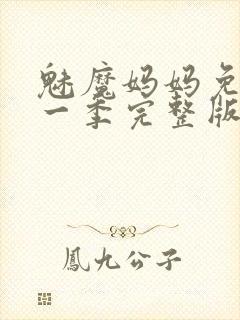 魅魔妈妈免
一季完整版
鳳九公子